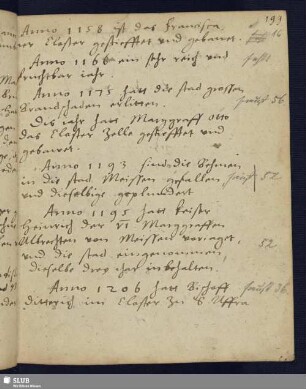 199
Anno 1158 ist das Francisca
ner Closter gestifftet und gebauet.
Anno 1166 ein sehr reich und
fruchtbar jahr.
Anno 1175 hatt die stad grossen
Brandschaden erlitten. 56
Dis jahr hatt Marggraff Otto
das Closter Zelle gestifftet und
gebauet.
Anno 1193 sind die Behmen
in die stad Meissen gefallen 52
und dieselbige geplundert
Anno 1195 hatt keiser
Heinrich der VI Marggraffen
Albrechten von Meissen verjaget, 52
und die stad eingenommen,
dieselbe drey jhar inbehalten.
Anno 1206 hatt Bischoff
Ditterich im Closter zu S Affra
SLUB